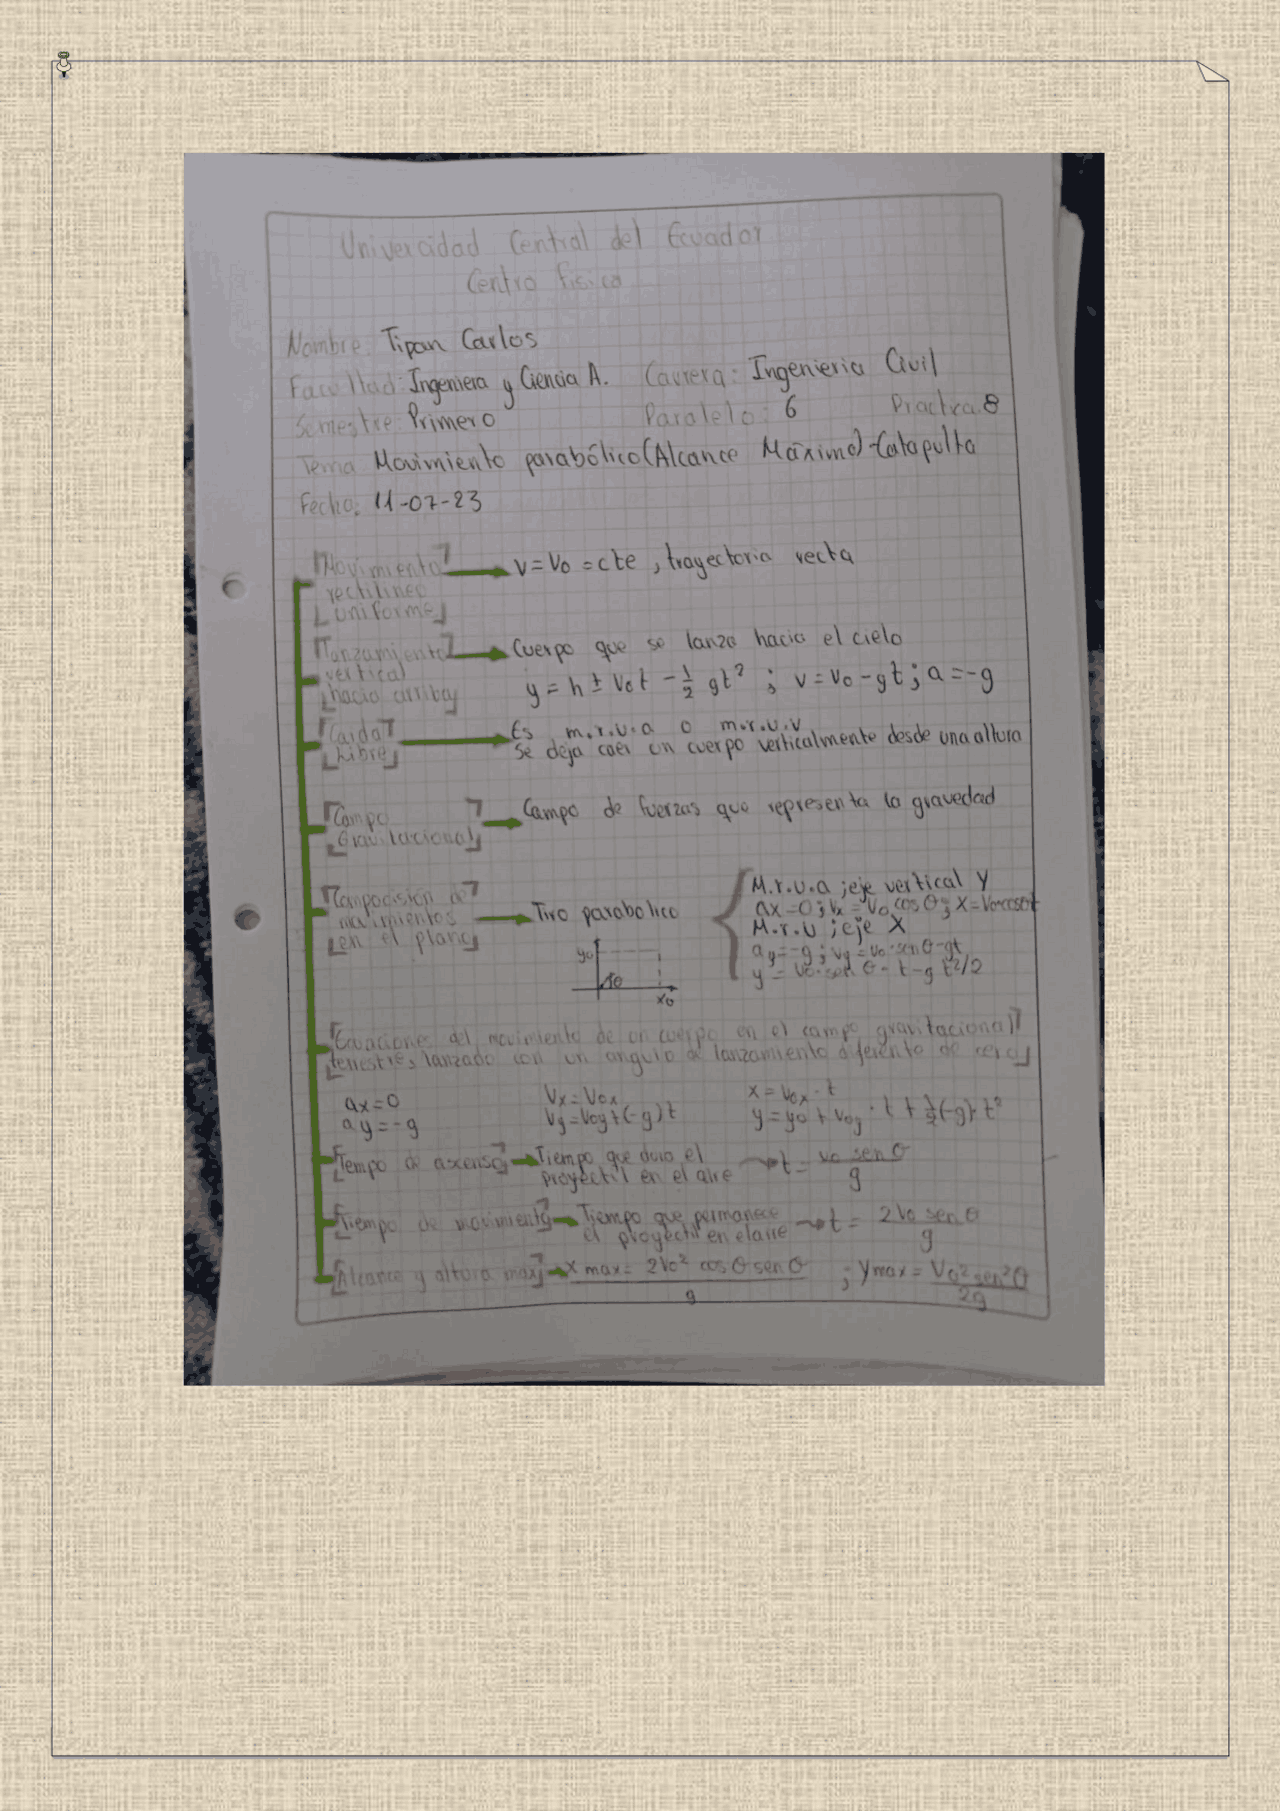 Univercidad Central del Ecuador
Centro Física
Nombre: Tipan Carlos
Facultad: Ingeniera y Ciencia A. Carrera: Ingenieria Civil
Semestre: Primero Paralelo: 6 Practica 8
Tema Movimiento parabólico (Alcance Máximo)-Catapulta
Fecha: 11-07-23
Movimiento → v=v0=cte, trayectoria recta
rectilineo
uniforme
Lanzamiento → Cuerpo que se lanza hacia el cielo
vertical
hacia arriba y = h ± v0t - 1/2 gt² ; v=v0-gt; a=-g
Caida → Es m.r.u.a o m.r.u.v
Libre Se deja caer un cuerpo verticalmente desde una altura
Campo → Campo de fuerzas que representa la gravedad
Gravitacional
Composición de
movimientos → Tiro parabolico
en el plano
M.r.u.a ;eje vertical Y
ax=0; vx=v0 cos θ; x=
M.r.u ;eje X
ay=-g; vy=v0·senθ-gt
y = v0·sen θ - t-g t²/2
y0
θ
x0
Ecuaciones del movimiento de un cuerpo en el campo gravitacional
terrestre, lanzado con un angulo de lanzamiento diferente de cero
ax=0 Vx=Vox x=Vox·t
ay=-g Vy=Voy+(-g)t y=y0+Voy·t+1/2(-g)·t²
Tempo de ascenso → Tiempo que dura el
proyectil en el aire → t= v0 sen θ / g
Tiempo de movimiento → Tiempo que permanece
el proyectil en el aire → t= 2V0 sen θ / g
Alcance y altura max → x max= 2V0² cos θ sen θ / g ; Ymax= V0² sen²θ / 2g